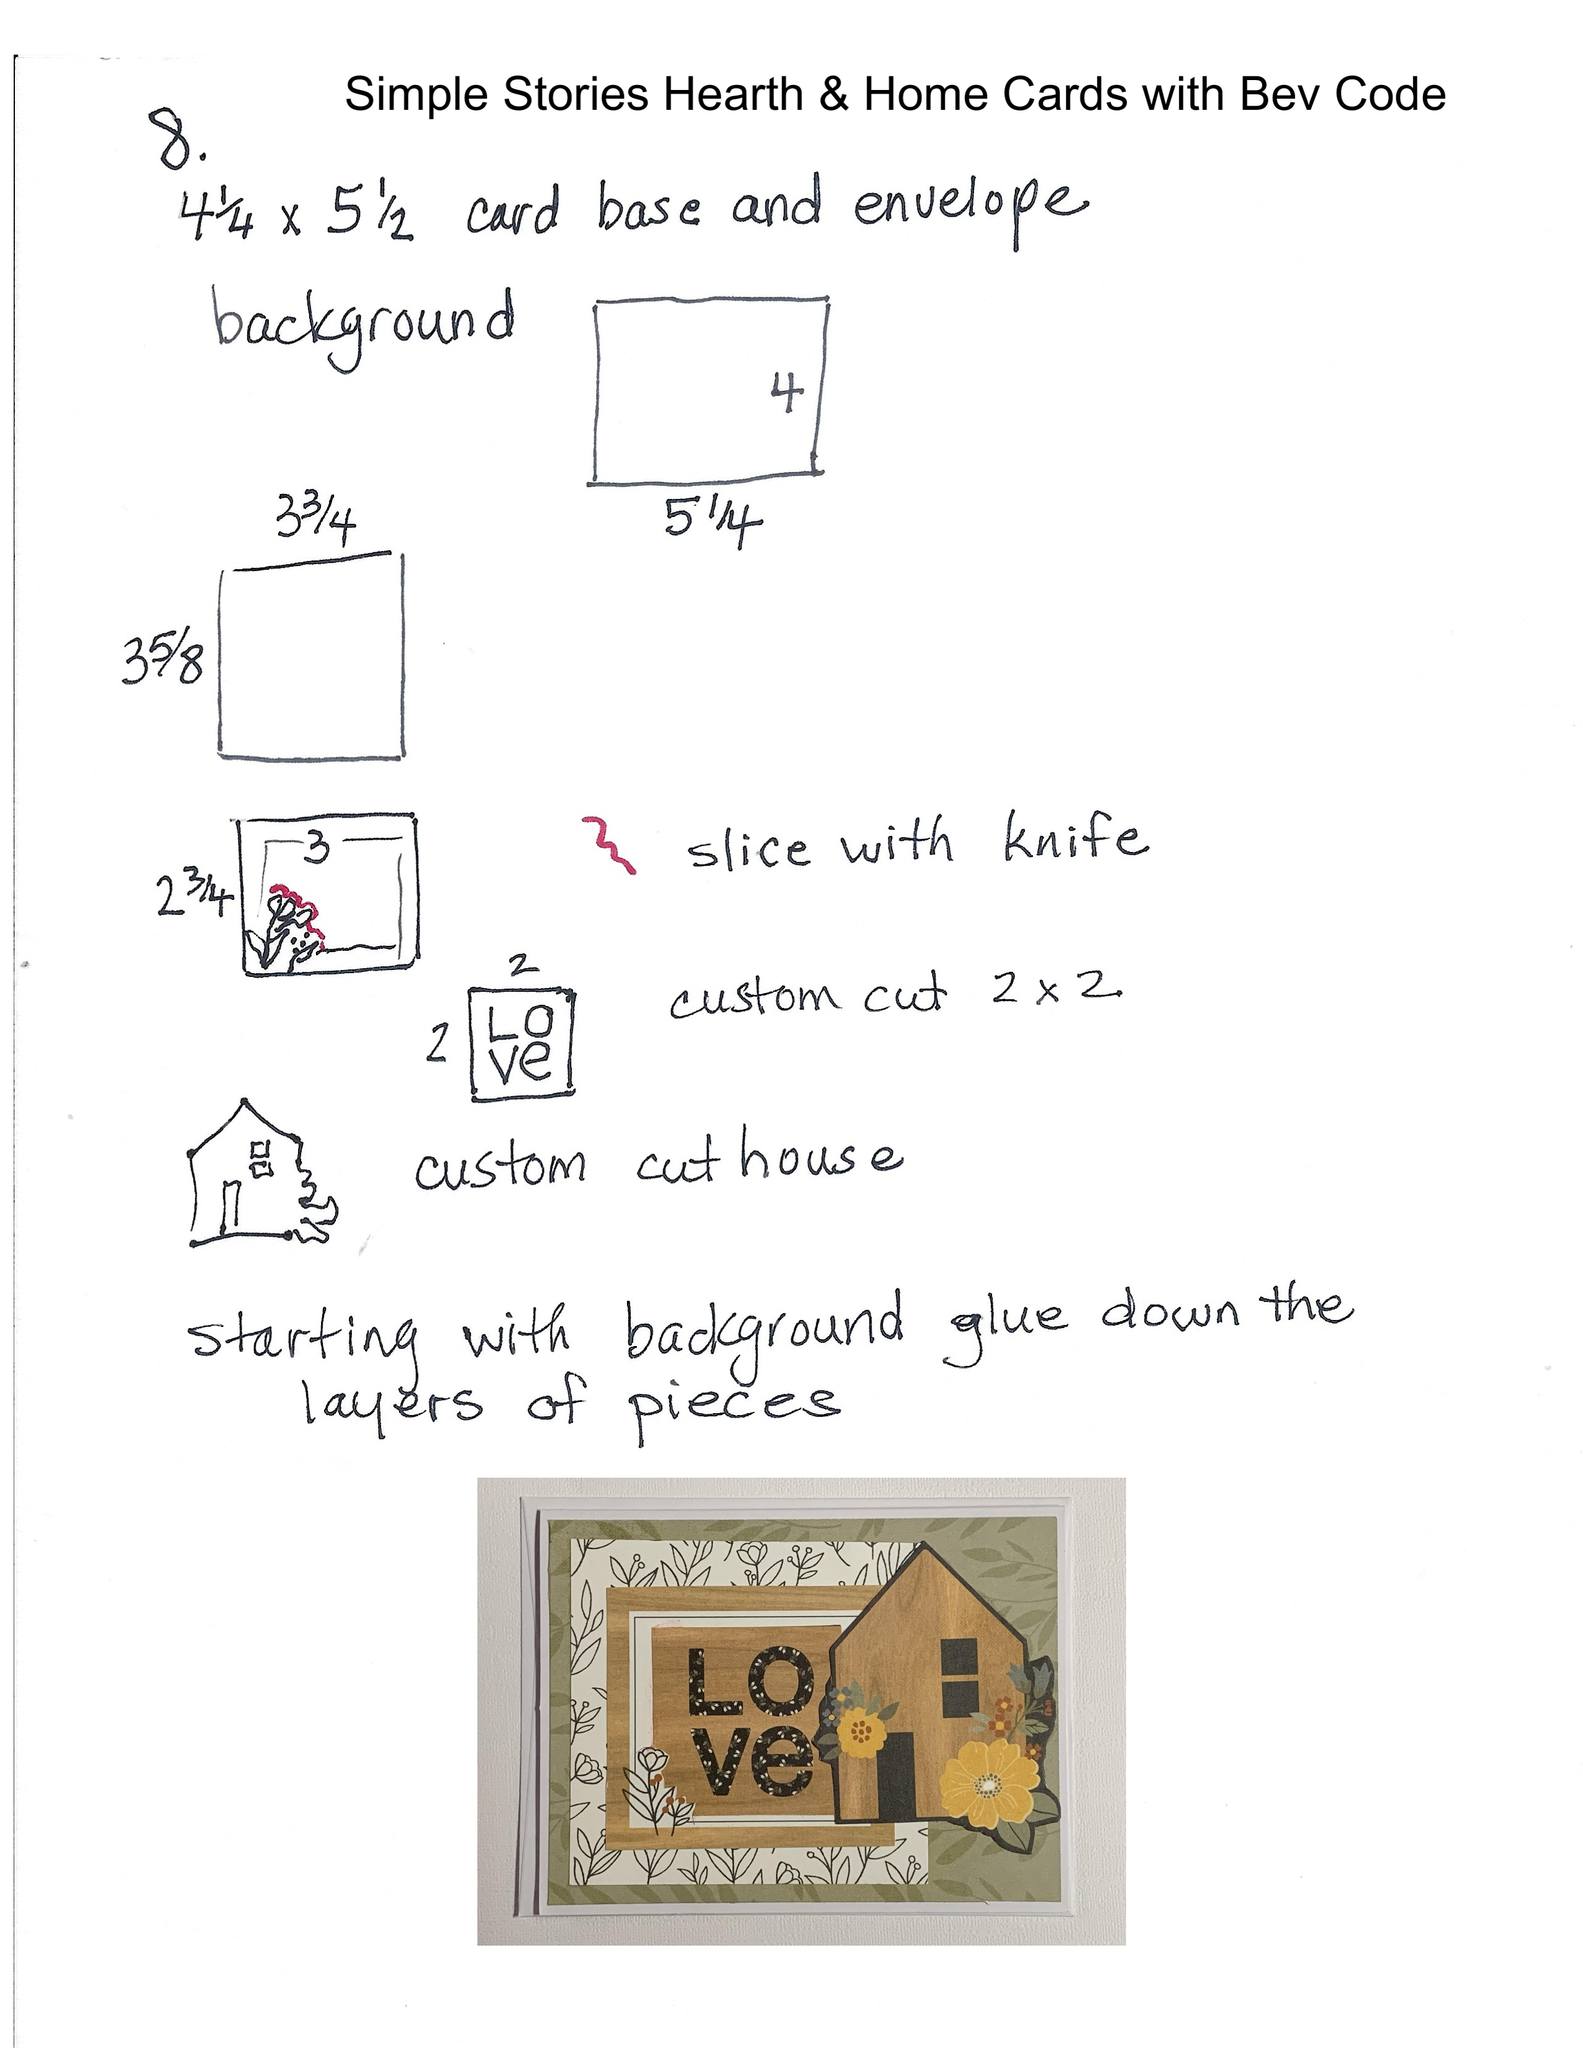 Simple Stories Hearth & Home Cards with Bev Code
8.
4 1/4 x 5 1/2 card base and envelope
background
4
5 1/4
3 3/4
3 5/8
3
2 3/4
slice with knife
2
2
LO
ve
custom cut 2 x 2
custom cut house
starting with background glue down the
layers of pieces
LO
ve